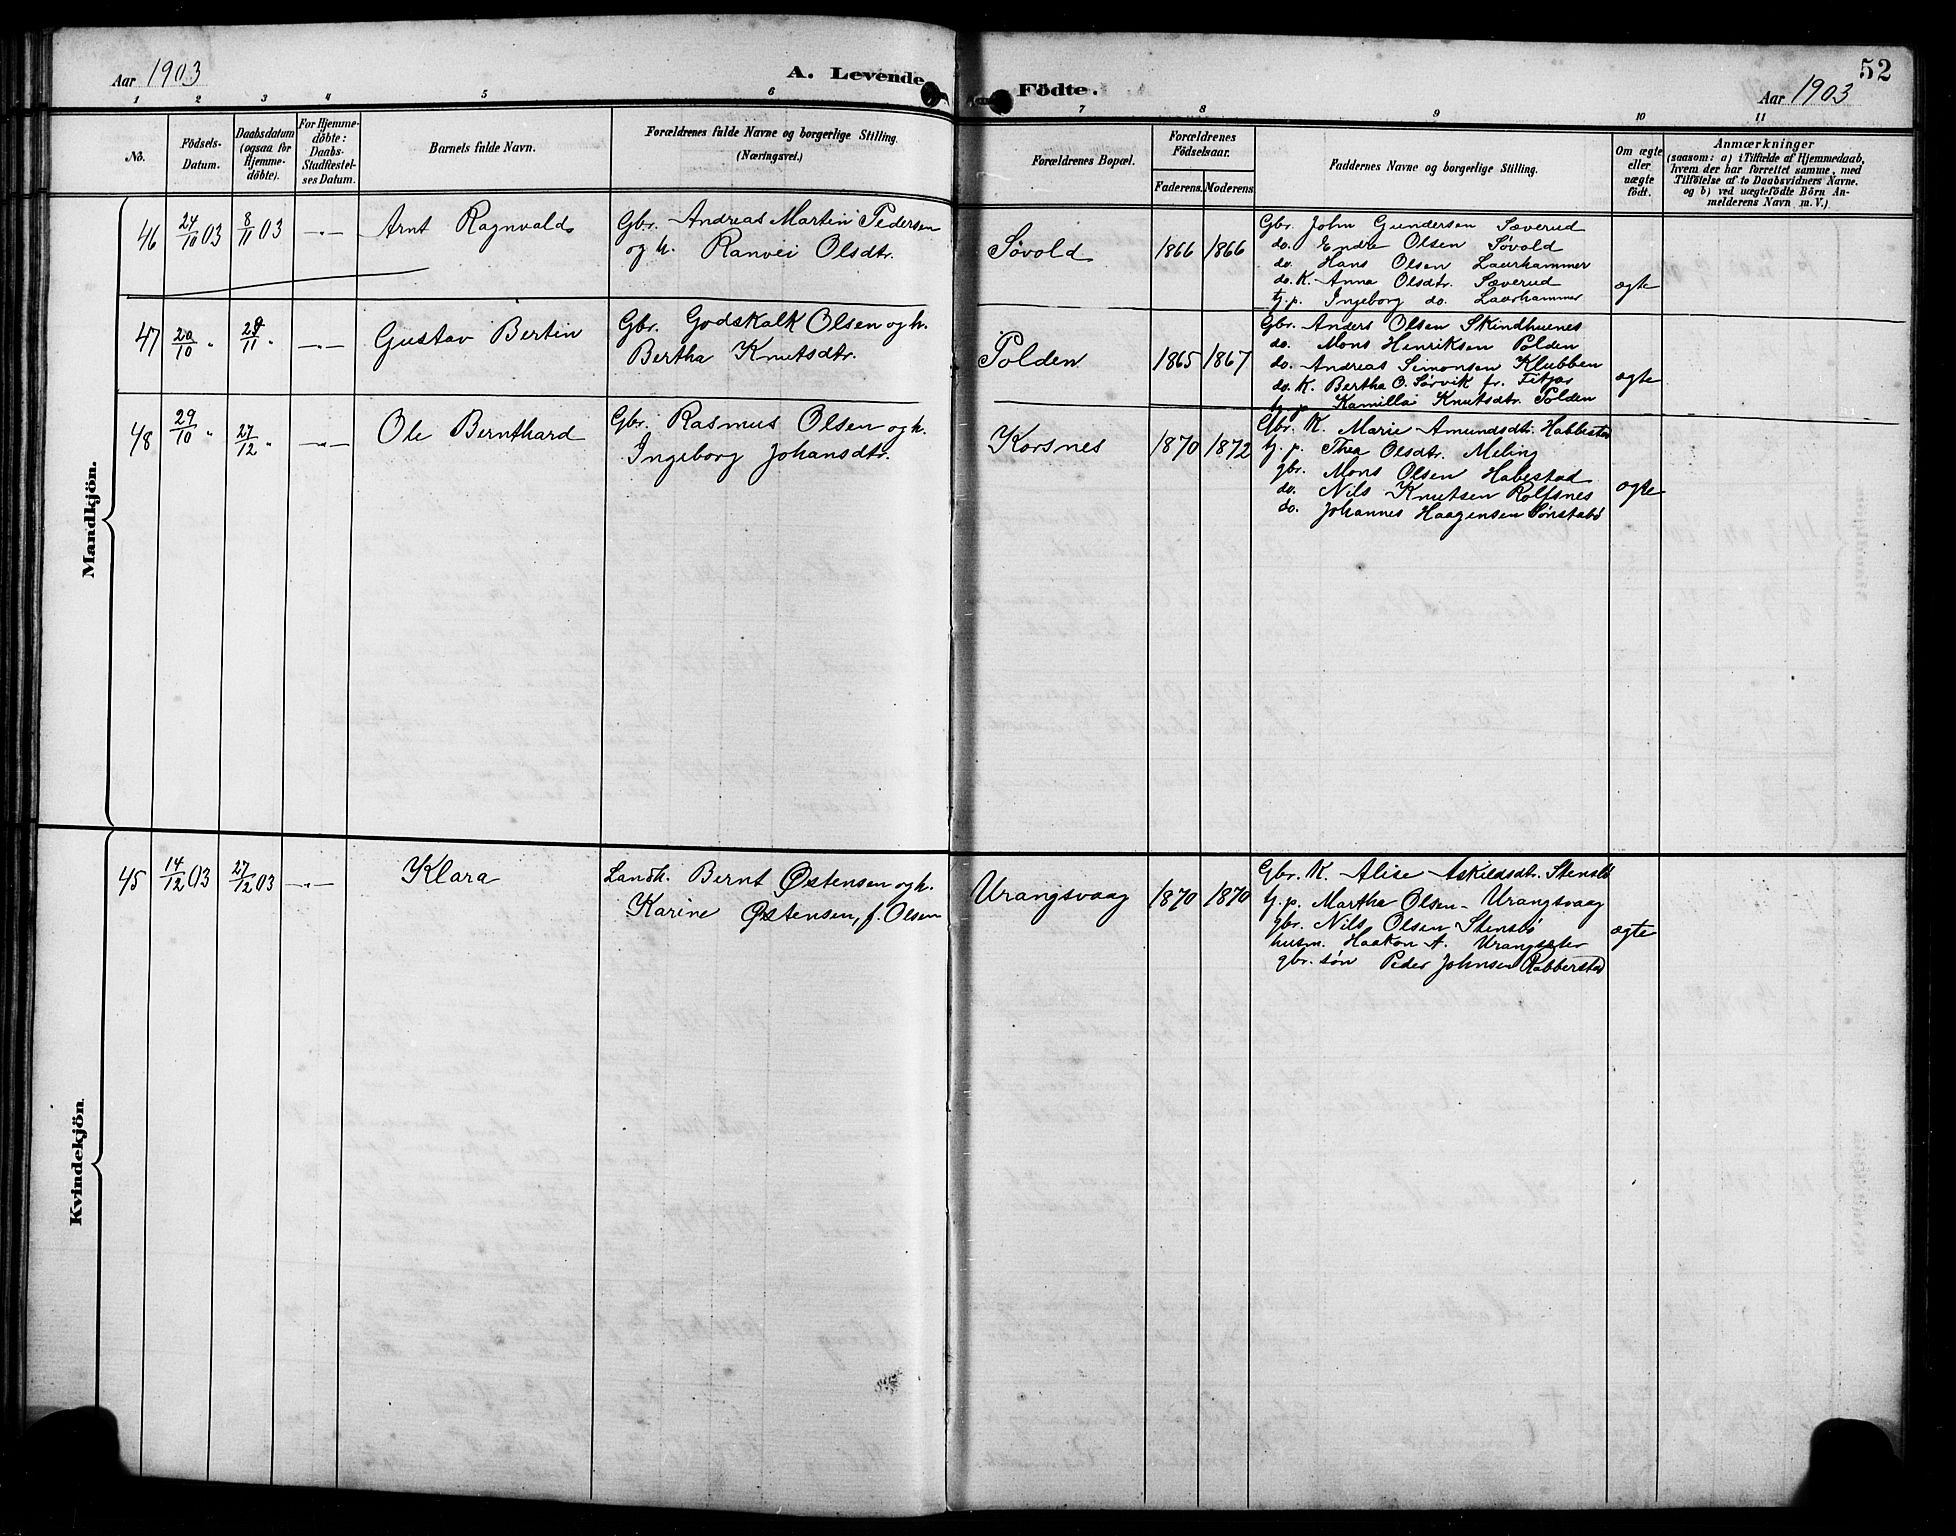 Aar 1903
A. Levende Födte.
Aar 1903
52
1 2 3 4 5 6 7 8 9 10 11
No.
Födsels-Datum.
Daabsdatum (ogsaa for Hjemme-döbte).
For Hjemme-döbte: Daabs-Stadfæstel-ses Datum.
Barnets fulde Navn.
Forældrenes fulde Navne og borgerlige Stilling.
(Næringsvei.)
Forældrenes Bopæl.
Forældrenes Födselsaar.
Faderens. Moderens.
Faddernes Navne og borgerlige Stilling.
Om ægte eller uægte födt.
Anmærkninger
(saasom: a) i Tilfælde af Hjemmedaab,
hvem der har forrettet samme, med
Tilföielse af to Daabsvidners Navne,
og b) ved uægtefödte Börn An-
melderens Navn m. V.)
Mandkjön.
46 24/10 03 8/11 03 -"- Arnt Ragnvald
Gbr. Andreas Martin Pedersen
og h. Ranvei Olsdtr.
Søvold 1866 1866
Gbr. John Gundersen Sæverud
do. Endre Olsen Søvold
do. Hans Olsen Laurhammer
do. K. Anna Olsdtr. Sæverud
tj. p. Ingeborg do. Laurhammer
ægte
47 20/10 " 29/11 " -"- Gustav Bertin
Gbr. Godskalk Olsen og h.
Bertha Knutsdtr.
Polden 1865 1867
Gbr. Anders Olsen Skindhuenes
do. Mons Henriksen Polden
do. Andreas Simonsen Klubben
do. K. Bertha O. Sørvik fr. Fitjar
tj. p. Kamilla Knutsdtr. Polden
ægte
48 29/10 " 27/12 " -"- Ole Bernthard
Gbr. Rasmus Olsen og h.
Ingeborg Johansdtr.
Korsnes 1870 1872
Gbr. K. Marie Amundsdtr. Habbestad
tj. p. Thea Olsdtr. Meling
gbr. Mons Olsen Habestad
do. Nils Knutsen Rolfsnes
do. Johannes Haagensen Sønstabø
ægte
Kvindekjön.
45 14/12 03 27/12 03 -"- Klara
Landh. Bernt Østensen og h.
Karine Østensen, f. Olsen
Urangsvaag 1870 1870
Gbr. K. Alise Askildsdtr. Stensbø
tj. p. Martha Olsen - Urangsvaag
gbr. Nils Olsen Stensbø
husm. Haakon A. Urangsæter
gbr. søn Peder Johnsen Rabberstad
ægte